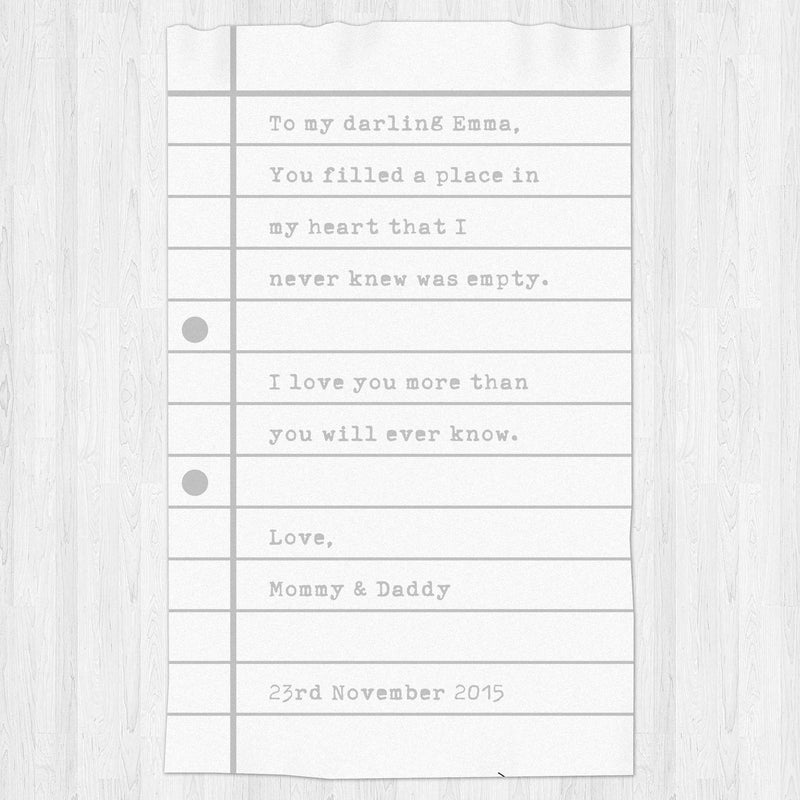 To my darling Emma,
You filled a place in
my heart that I
never knew was empty.
I love you more than
you will ever know.
Love,
Mommy & Daddy
23rd November 2015